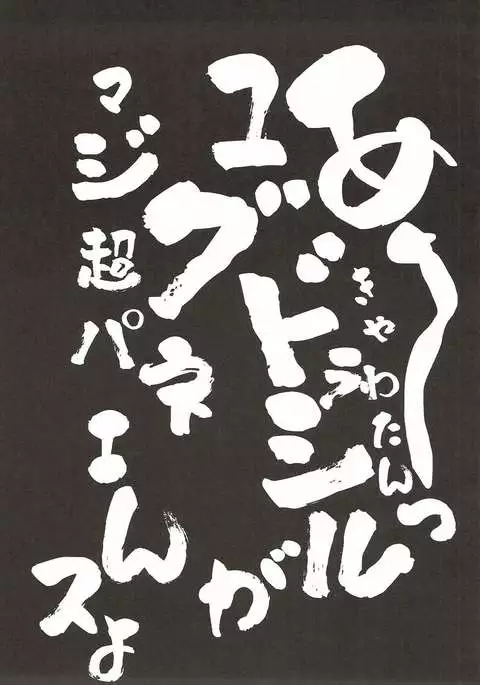 あ〜
きゃわたんっ
ユグドラシルが
マジ超パネエんスよ